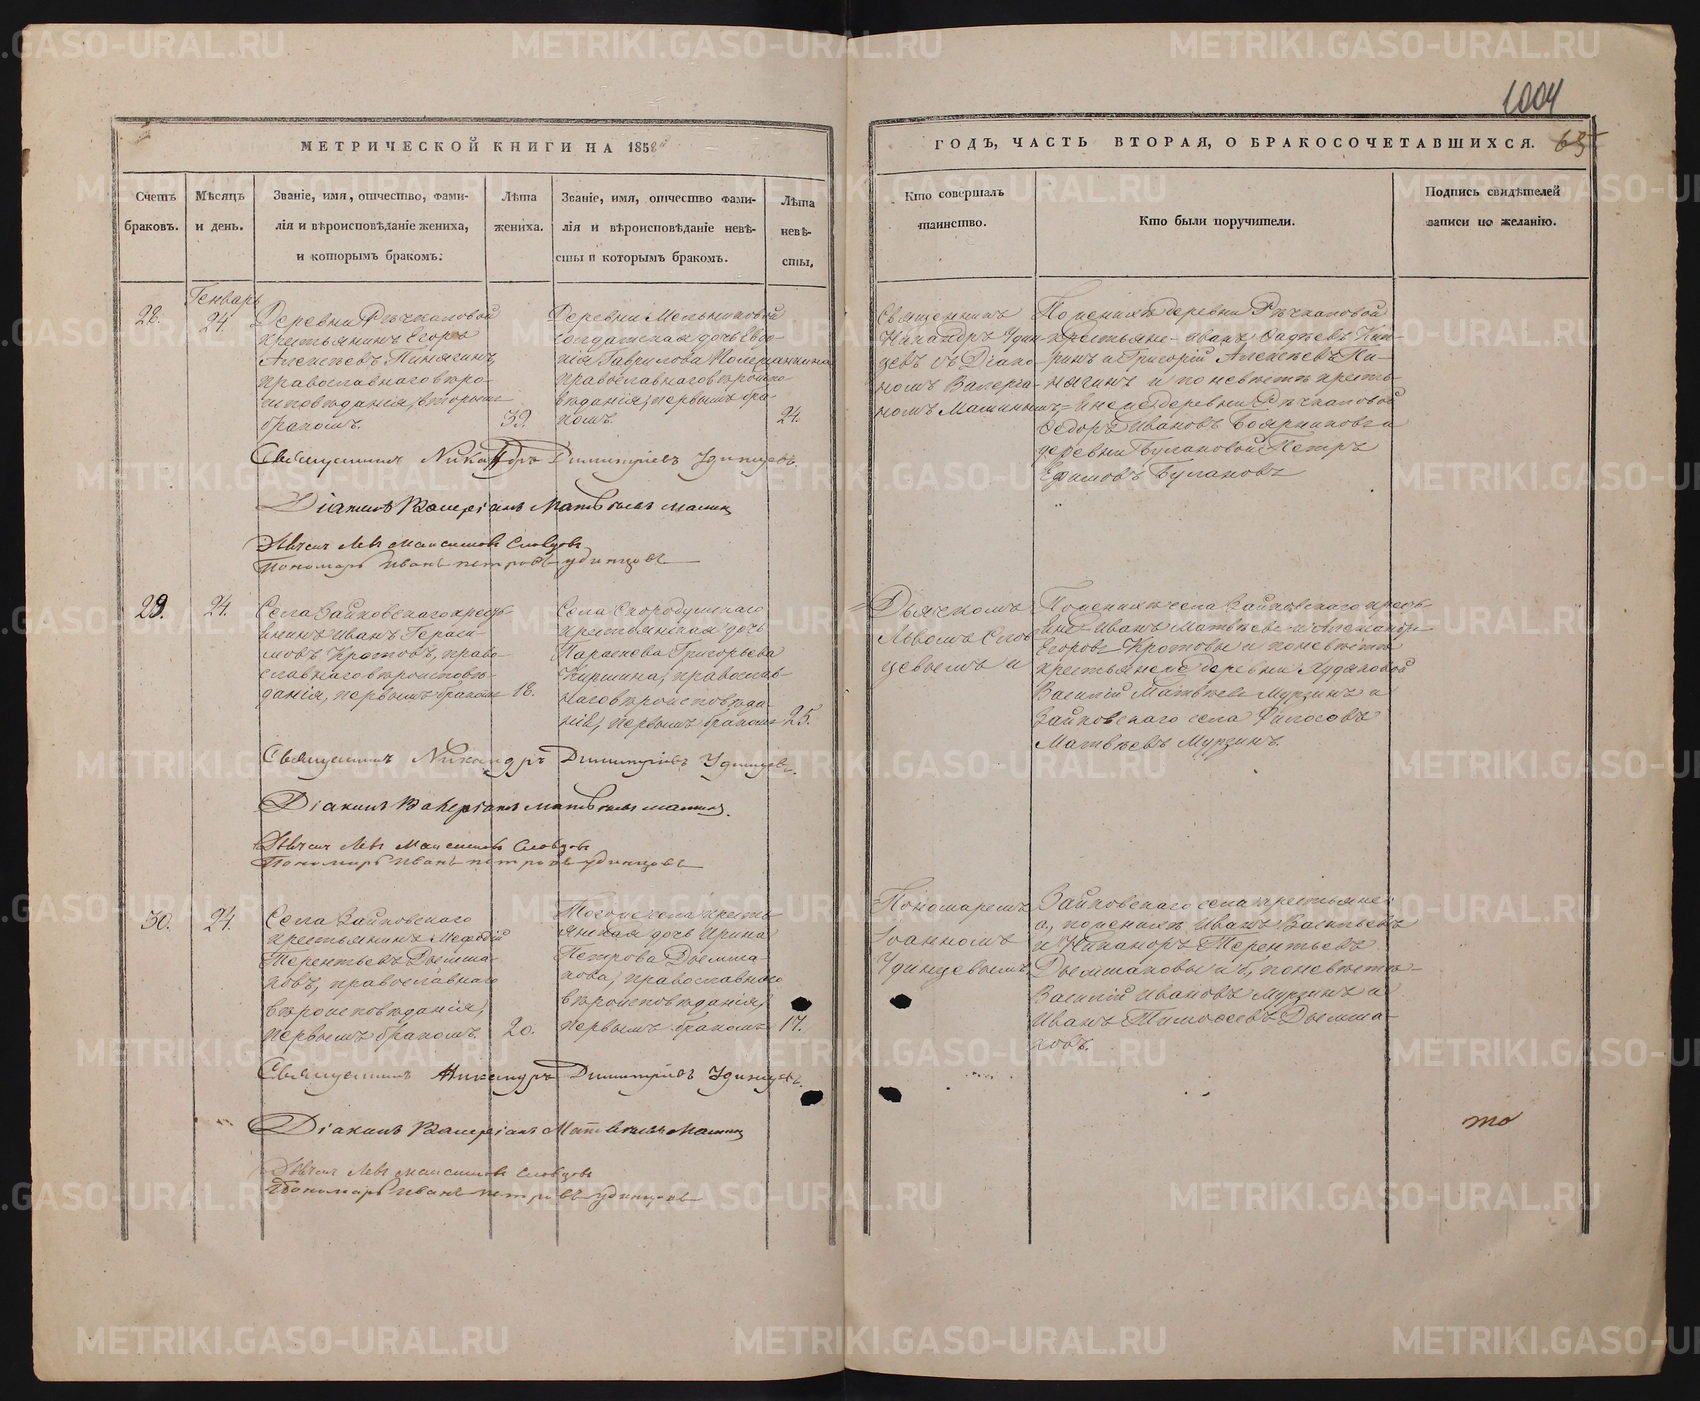 1004
МЕТРИЧЕСКОЙ КНИГИ НА 1858й
ГОДЪ, ЧАСТЬ ВТОРАЯ, О БРАКОСОЧЕТАВШИХСЯ.
65
Счетъ браковъ.
Мѣсяцъ и день.
Званіе, имя, отчество, фами-
лія и вѣроисповѣданіе жениха,
и которымъ бракомъ.
Лѣта жениха.
Званіе, имя, отчество фами-
лія и вѣроисповѣданіе невѣ-
сты и которымъ бракомъ.
Лѣта невѣ-
сты,
Кто совершалъ
таинство.
Кто были поручители.
Подпись свидѣтелей
записи по желанію.
28.
Генварь
24.
Деревни Рѣчкаловой
крестьянинъ Егоръ
Алексѣевъ Пинягинъ
православнаго вѣро-
исповѣданія, вторымъ
бракомъ.
39.
Деревни Мельниковой
солдатская дочь Евдо-
кія Гаврилова
православнаго вѣроиспо-
вѣданія, первымъ бра-
комъ.
24.
Священникъ
Никандръ Удин-
цевъ съ Діако-
номъ Валеріа-
номъ Маминымъ
По женихѣ деревни Рѣчкаловой
крестьяне Иванъ
и Григорій Алексѣевъ Пи-
нягинъ и по невѣстѣ кресть-
яне деревни Рѣчкаловой
Федоръ Ивановъ Бояркиковъ и
деревни Булановой Петръ
Ефимовъ Булановъ
Священникъ Никандръ Димитріевъ Удинцевъ.
Діаконъ Валеріанъ Матвѣевъ Маминъ
Дьячекъ Левъ Максимовъ Словцовъ
Пономарь Иванъ Петровъ Удинцовъ
29.
24.
Села Зайковскаго кресть-
янинъ Иванъ Гераси-
мовъ Кротовъ, право-
славнаго вѣроисповѣ-
данія, первымъ бракомъ
18.
Села Скородумскаго
крестьянская дочь
Параскева Григорьева
Киршина, православ-
наго вѣроисповѣда-
нія, первымъ бракомъ
25.
Дьячкомъ
Львомъ Слов-
цевымъ и
По женихѣ села Зайковскаго кресть-
яне Иванъ Матвѣевъ и Александръ
Егоровъ Кротовы и по невѣстѣ
крестьяне деревни Худяковой
Василій Матвѣевъ Мурзинъ и
Зайковскаго села
Матвѣевъ Мурзинъ.
Священникъ Никандръ Димитріевъ Удинцевъ.
Діаконъ Валеріанъ Матвѣевъ Маминъ.
Дьячекъ Левъ Максимовъ Словцовъ
Пономарь Иванъ Петровъ Удинцовъ
30.
24.
Села Зайковскаго
крестьянинъ Мефодій
Терентьевъ Доемша-
ковъ, православнаго
вѣроисповѣданія,
первымъ бракомъ.
20.
Того же села кресть-
янская дочь Ирина
Петрова Доемша-
кова, православнаго
вѣроисповѣданія,
первымъ бракомъ
17.
Пономаремъ
Іоанномъ
Удинцевымъ
Зайковскаго села крестьяне:
а, по женихѣ Иванъ Васильевъ
и Никаноръ Терентьевъ
Доемшаковы и б, по невѣстѣ
Василій Ивановъ Мурзинъ и
Иванъ Тимофеевъ Доемша-
ковъ.
Священникъ Никандръ Димитріевъ Удинцевъ.
Діаконъ Валеріанъ Матвѣевъ Маминъ
то
Дьячекъ Левъ Максимовъ Словцовъ
Пономарь Иванъ Петровъ Удинцовъ
METRIKI.GASO-URAL.RU